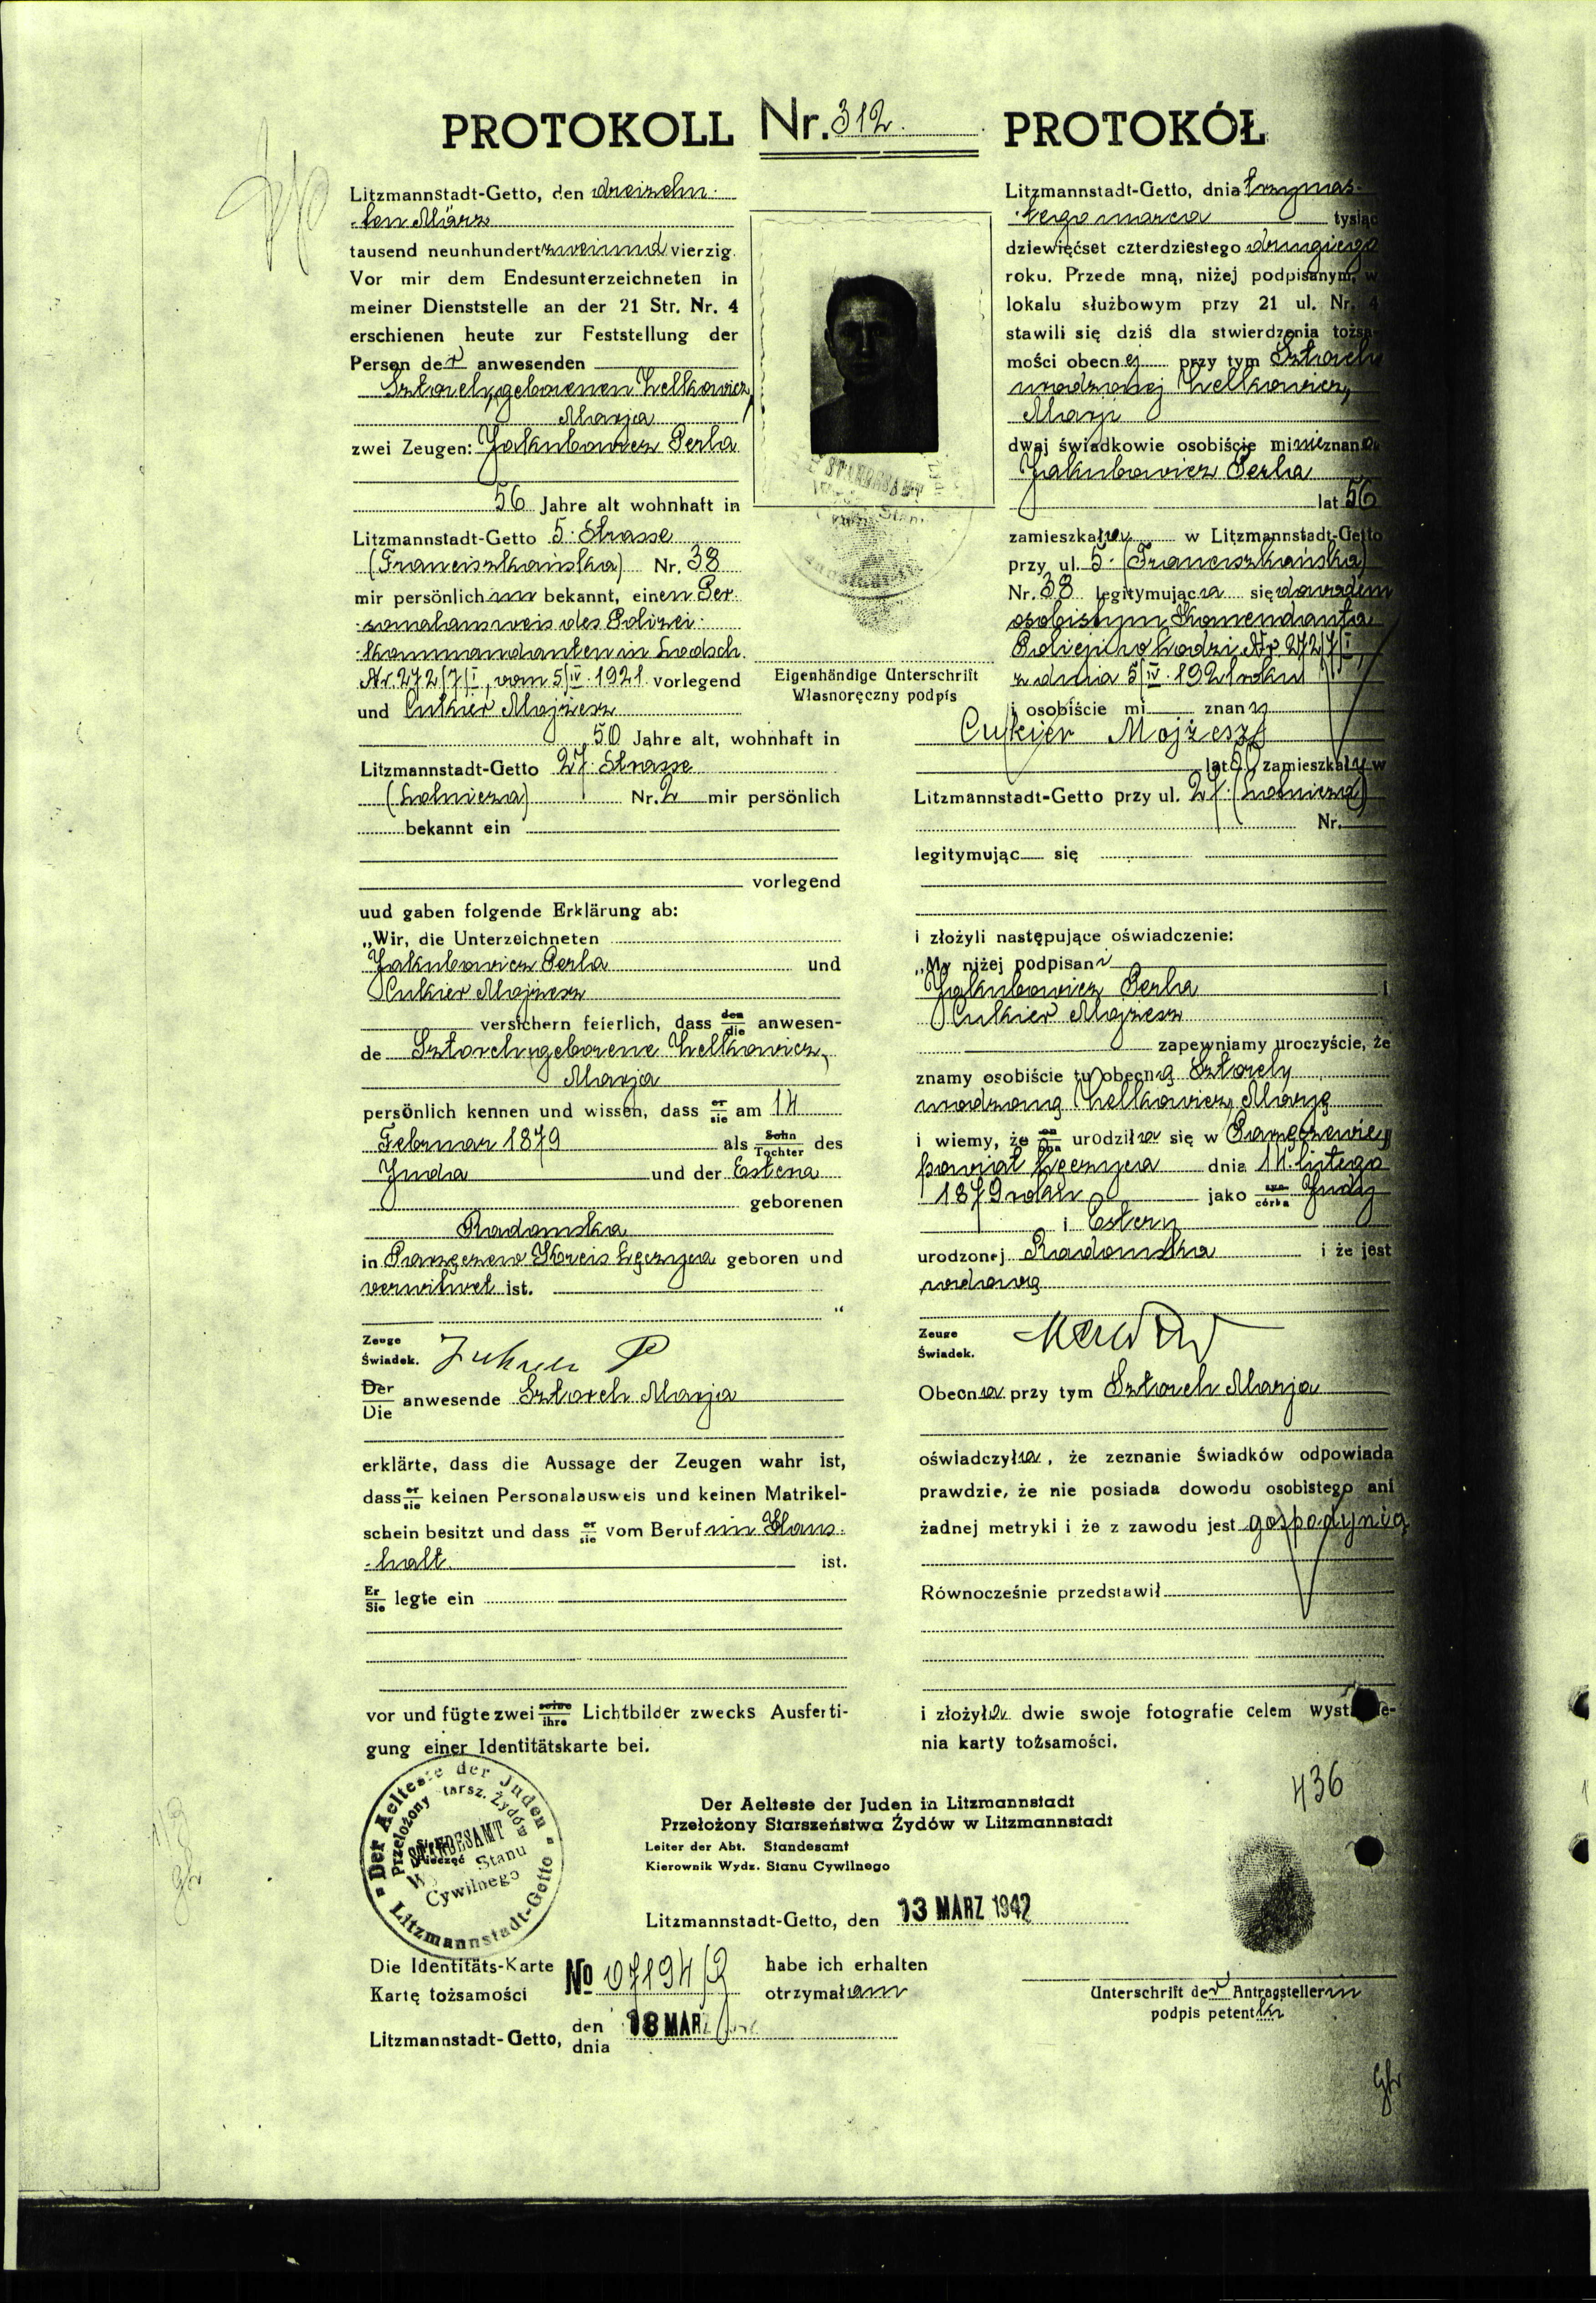 PROTOKOLL Nr. 312. PROTOKÓŁ
Litzmannstadt-Getto, den dreizehn-
-ten März
tausend neunhundert zweiund vierzig.
Vor mir dem Endesunterzeichneten in
meiner Dienststelle an der 21 Str. Nr. 4
erschienen heute zur Feststellung der
Person der anwesenden
Sztorch, geborenen Lelkowicz,
Marja
zwei Zeugen: Jakubowicz Perla
56 Jahre alt wohnhaft in
Litzmannstadt-Getto 5. Strasse
(Franciszkańska) Nr. 38
mir persönlich un bekannt, einen Per-
-sonalausweis des Polizei-
-kommandanten in Lodsch
Nr. 272/7/I, vom 5/IV. 1921 vorlegend
und Cukier Mojżesz
50 Jahre alt, wohnhaft in
Litzmannstadt-Getto 27. Strasse
(Żołnierza) Nr. 2 mir persönlich
bekannt ein
vorlegend
uud gaben folgende Erklärung ab:
„Wir, die Unterzeichneten
Jakubowicz Perla und
Cukier Mojżesz
versichern feierlich, dass den/die anwesen-
de Sztorch, geborene Lelkowicz,
Marja
persönlich kennen und wissen, dass er/sie am 14
Februar 1879 als Sohn/Tochter des
Juda und der Estera
geborenen
Radomska
in Parzęczew Kreis Łęczyca geboren und
verwitwet ist.
"
Zeuge
Świadek.
Der/Die anwesende Sztorch Marja
erklärte, dass die Aussage der Zeugen wahr ist,
dass er/sie keinen Personalausweis und keinen Matrikel-
schein besitzt und dass er/sie vom Beruf im Haus-
-halt ist.
Er/Sie legte ein
vor und fügte zwei seine/ihre Lichtbilder zwecks Ausferti-
gung einer Identitätskarte bei.
Eigenhändige Unterschrift
Własnoręczny podpis
Litzmannstadt-Getto, dnia trzynas-
-tego marca tysiąc
dziewięćset czterdziestego drugiego
roku. Przede mną, niżej podpisanym, w
lokalu służbowym przy 21 ul. Nr. 4
stawili się dziś dla stwierdzenia tożsa-
mości obecnej przy tym Sztorch
urodzonej Lelkowicz,
Marji
dwaj świadkowie osobiście mi nieznana
Jakubowicz Perla
lat 56
zamieszkała w Litzmannstadt-Getto
przy ul. 5. (Franciszkańska)
Nr. 38 legitymująca się dowodem
osobistym Komendanta
Policji w Łodzi Nr 272/7/I,
z dnia 5/IV. 1921 roku
i osobiście mi znany
Cukier Mojżesz
lat 50 zamieszkały w
Litzmannstadt-Getto przy ul. 27. (Żołnierza)
Nr.
legitymując się
i złożyli następujące oświadczenie:
„My niżej podpisani
Jakubowicz Perla i
Cukier Mojżesz
zapewniamy uroczyście, że
znamy osobiście tu obecną Sztorch,
urodzoną Lelkowicz, Marję
i wiemy, że on/ona urodziła się w Parzęczewie,
powiat Łęczyca dnia 14. lutego
1879 roku jako syn/córka Judy
i Estery
urodzonej Radomska i że jest
wdową
Zeuge
Świadek.
Obecna przy tym Sztorch Marja
oświadczyła, że zeznanie świadków odpowiada
prawdzie, że nie posiada dowodu osobistego ani
żadnej metryki i że z zawodu jest gospodynią
Równocześnie przedstawił
i złożyła dwie swoje fotografie celem wystawie-
nia karty tożsamości.
436
Der Aelteste der Juden
Litzmannstadt-Getto
STANDESAMT
Stanu
Cywilnego
Der Aelteste der Juden in Litzmannstadt
Przełożony Starszeństwa Żydów w Litzmannstadt
Leiter der Abt. Standesamt
Kierownik Wydz. Stanu Cywilnego
Litzmannstadt-Getto, den 13 MARZ 1942
Die Identitäts-Karte
Kartę tożsamości
No 07194/2 habe ich erhalten
otrzymałam
Litzmannstadt-Getto, den/dnia 18 MARZ
Unterschrift der Antragstellerin
podpis petentki